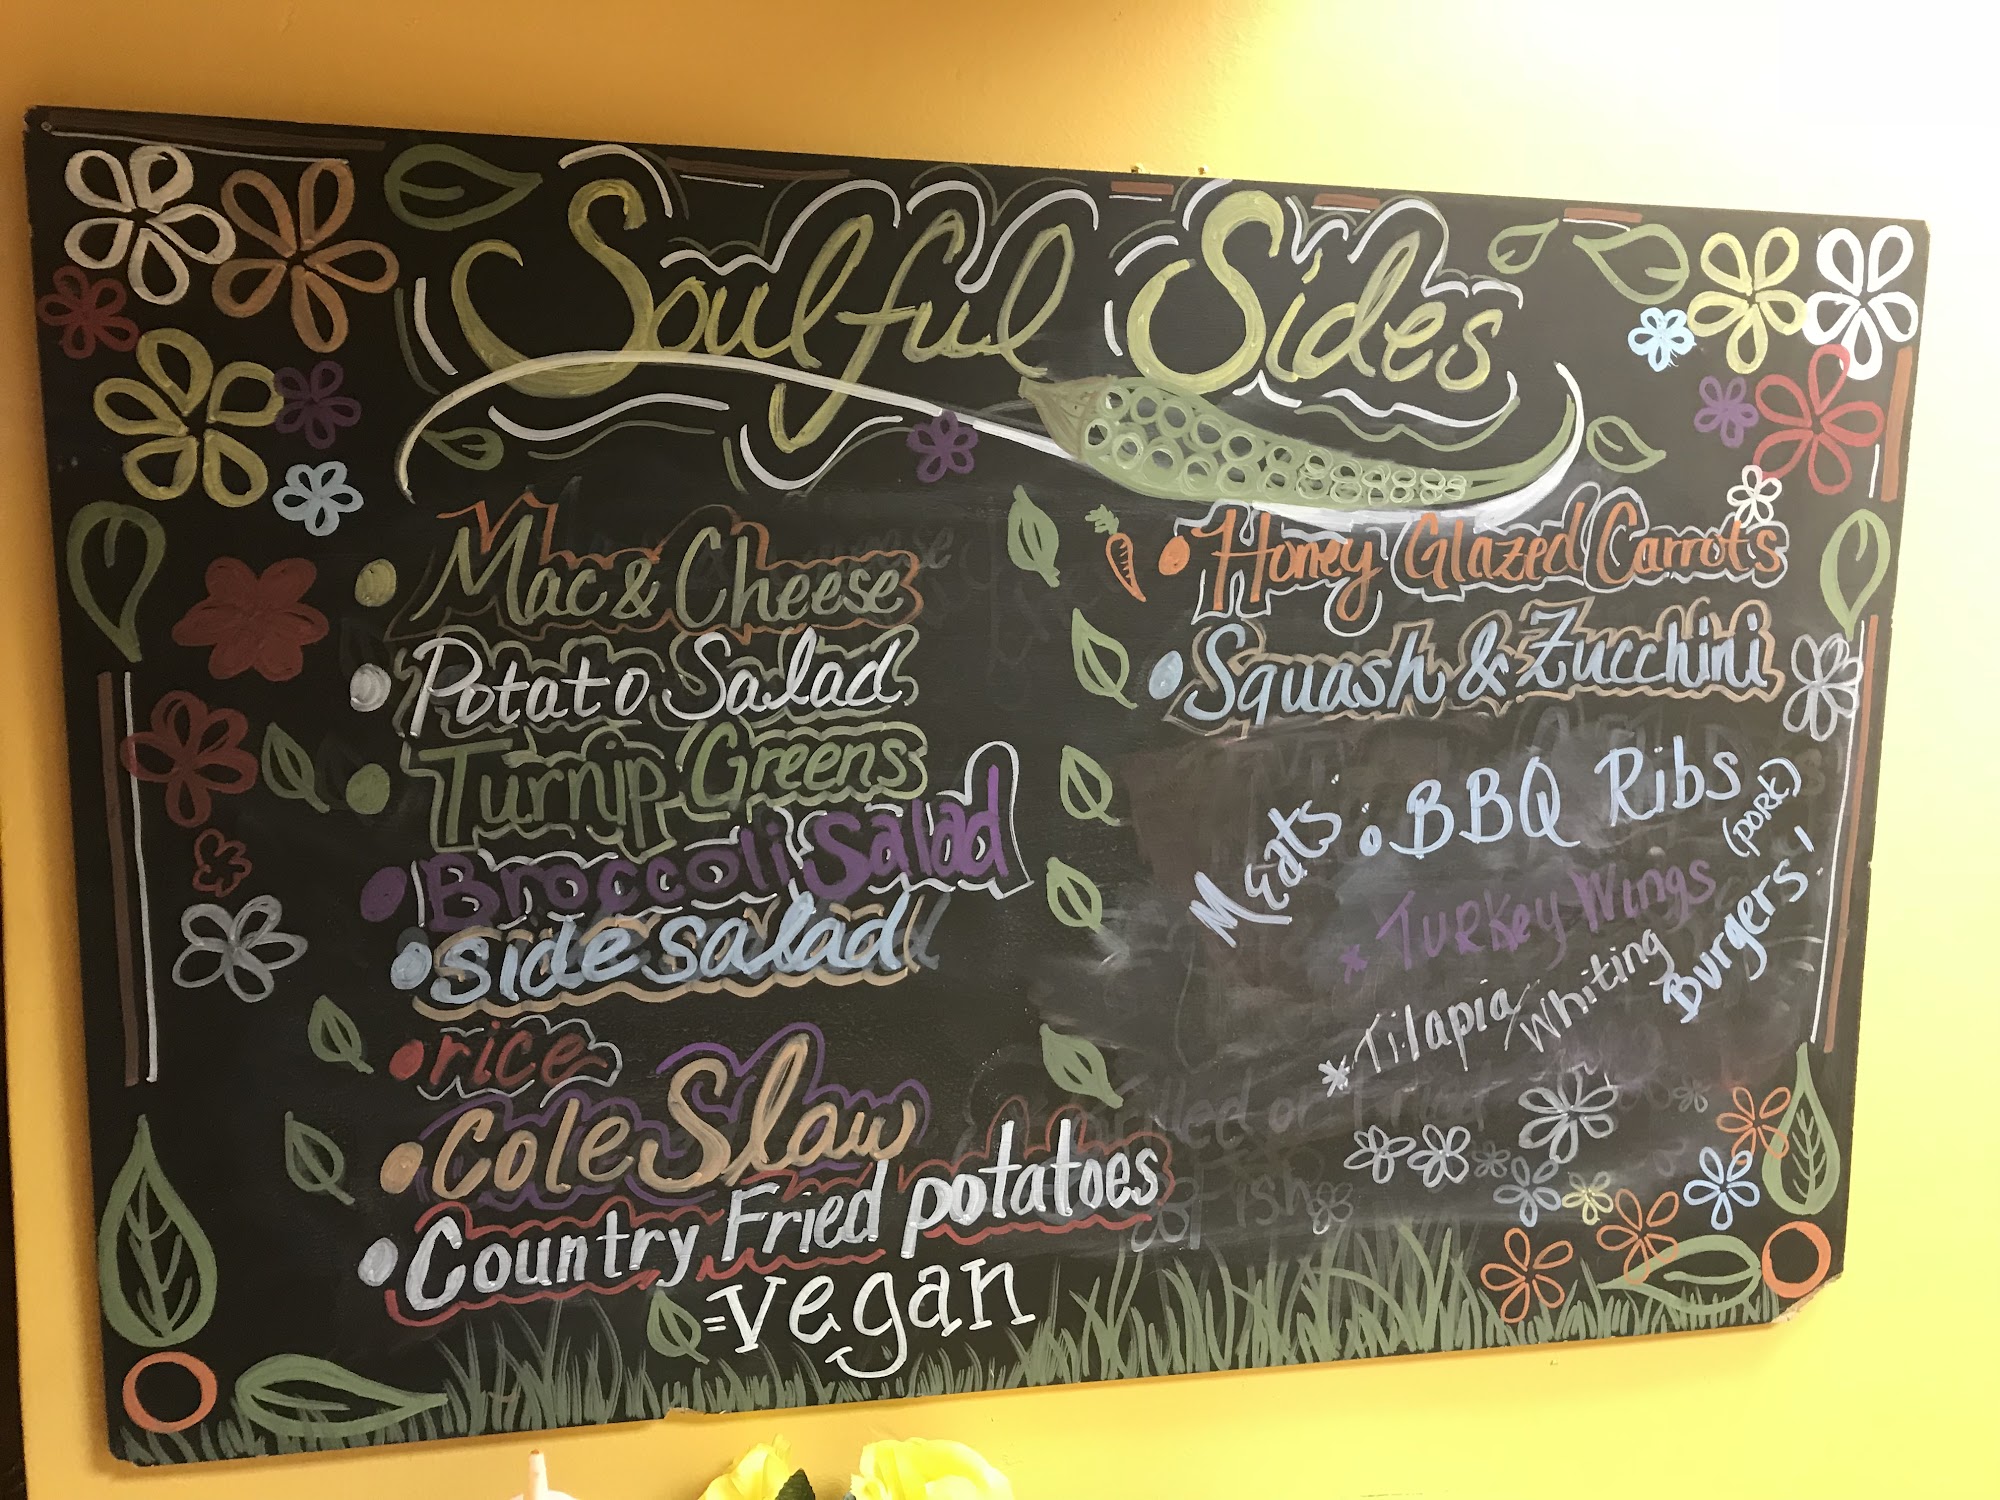 Soulful Sides
Mac & Cheese
Potato Salad
Turnip Greens
Broccoli Salad
side salad
rice
Cole Slaw
Country Fried potatoes
=vegan
Honey Glazed Carrots
Squash & Zucchini
Meats:
BBQ Ribs
(PORK)
* Turkey Wings
* Tilapia/Whiting
Burgers!